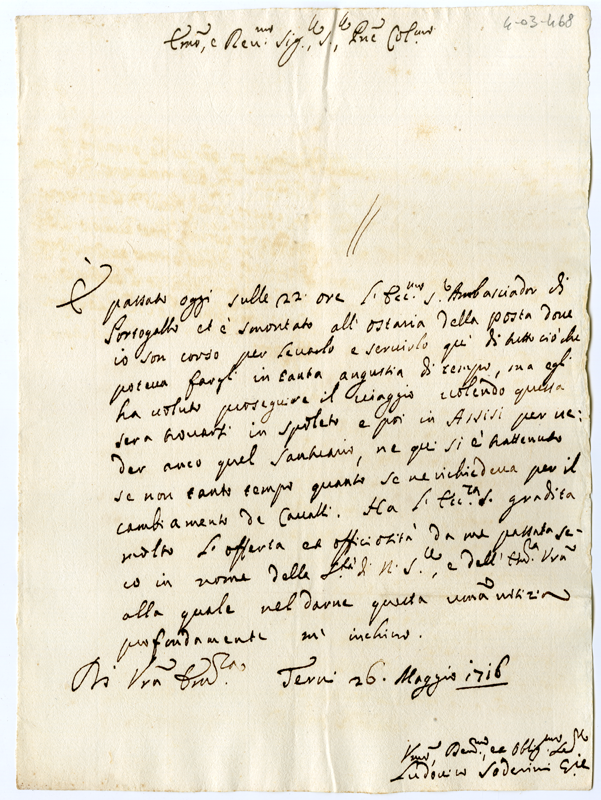 4-03-468
Emo, e Revmo Sig.r, Sr, Pne Colmo
È passato oggi sulle 22 ore l'Eccmo Sr Ambasciador di
Portogallo et è smontato all'ostaria della posta doue
io son corso per leuarlo e seruirlo qui di tutto ciò che
poteua fargl in tanta angustia di tempo, ma egli
ha uoluto proseguire il uiaggio uolendo questa
sera trouarsi in Spoleto e poi in Assisi per ue:
der anco quel Santuario, ne qui si è trattenuto
se non tanto tempo quanto se ne richiedeua per il
cambiamento de Caualli. Ha l'Ecc.za S. gradita
molto l'offerta et officiosità da me passata se-
co in nome della S.tà di N. S.re, e dell'Em.za Vra
alla quale nel darne questa umã notizia
profondamente m'inchino.
Di Vra Em.za Terni 26. Maggio 1716
Vmo, Deumo, et Obligmo
Ludovico Soderini